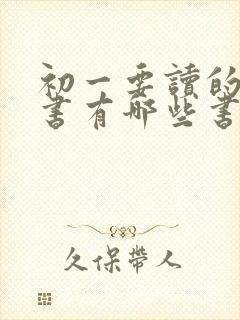 初一要讀的
書有哪些書
久保帶人